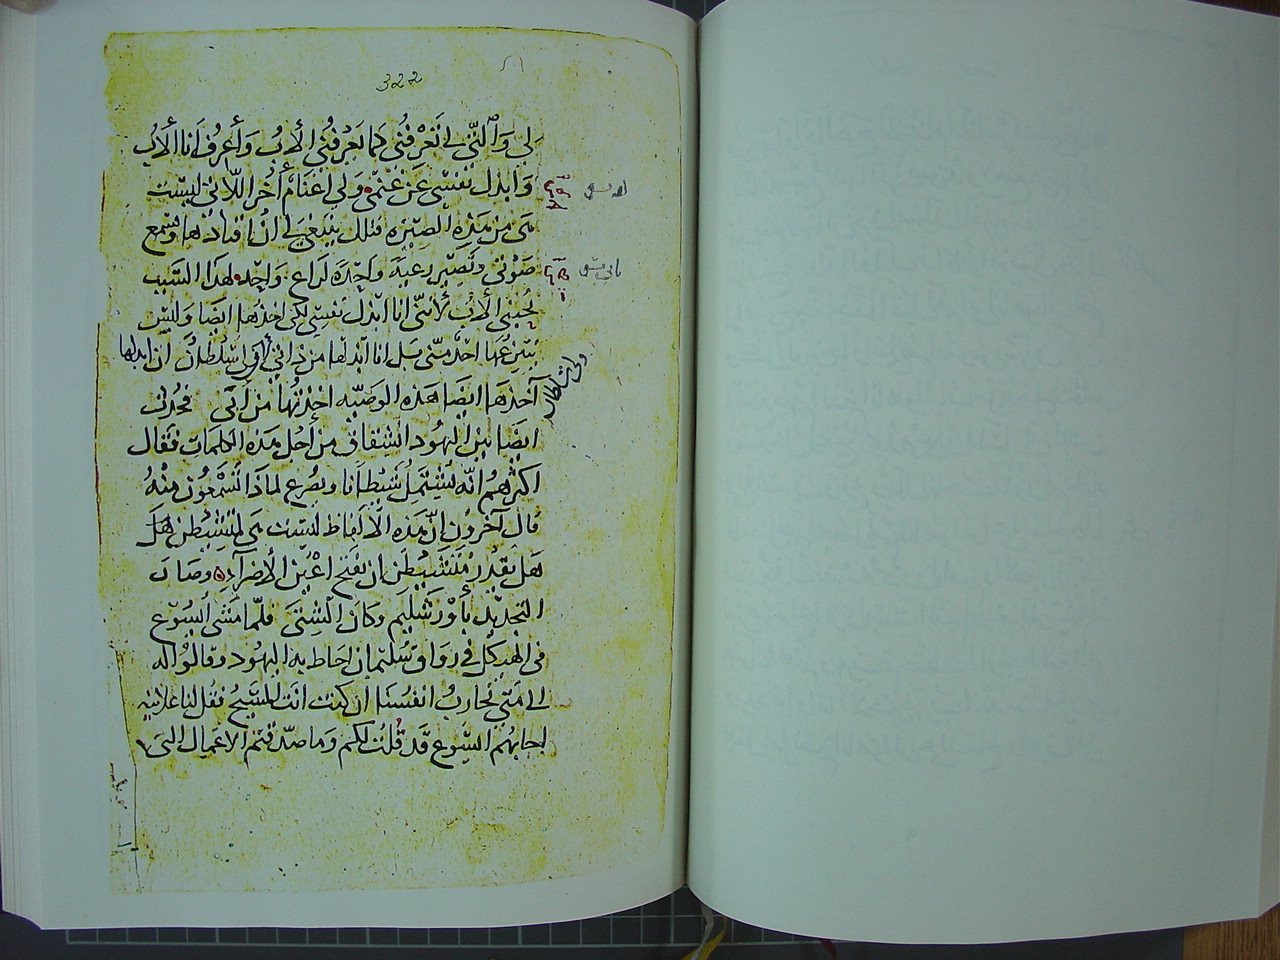 322
لى وَالتّى لى تَعْرِفُنى كما يَعْرِفُنى الأبُ وَأعرِفُ أنا الأبَ
وَابذل نَفْسى عَن غنمى وَلى اغنام أُخر اللّاتى ليست
هى من هَذِهِ الصِيرَه فتلك ينبَغى لى ان اقتادها وتسمع
صَوْتى وتَصِير رعيَّة وَاحِدَة لراعٍ وَاحِد لهذا السَبب
يُحبنى الأبُ لأنّنى انا ابذل نَفسى لكى اخذها ايضًا وَليس
ينتزعُها احدٌ منّى بَل انا ابذلها من ذاتى لى سلطانٌ ان ابذلها
ولى سلطان
آخذها ايضًا هَذِه الوَصيّه اخذتُها من أبى فحدث
ايضًا بين اليهُود الشِقاق من أجل هَذِه الكلمات فقال
اكثرهمُ انّه يشتمل شَيْطانا ويصْرع لماذَا تَسْمَعُون منْهُ
قال آخرُون إنّ هَذِه الالفاظ ليسَت هى لمتشيطن هَل
هَل يَقْدر مُتَشَيْطِن ان يفتح اعْيُن الأضرّاء وصَارَ
التجديد بأورَشَليم وكان الشِتى فلمّا مَشى ايسُوع
فى الهيكل فى رواق سُليمان احَاط به اليهُود وقالوا له
الى متى تُحارب انفُسَنا ان كنت انت المسيح فقل لنا علانيه
اجابهُم ايسُوع قد قُلت لكم وَما صدّقتم الاعمال التى